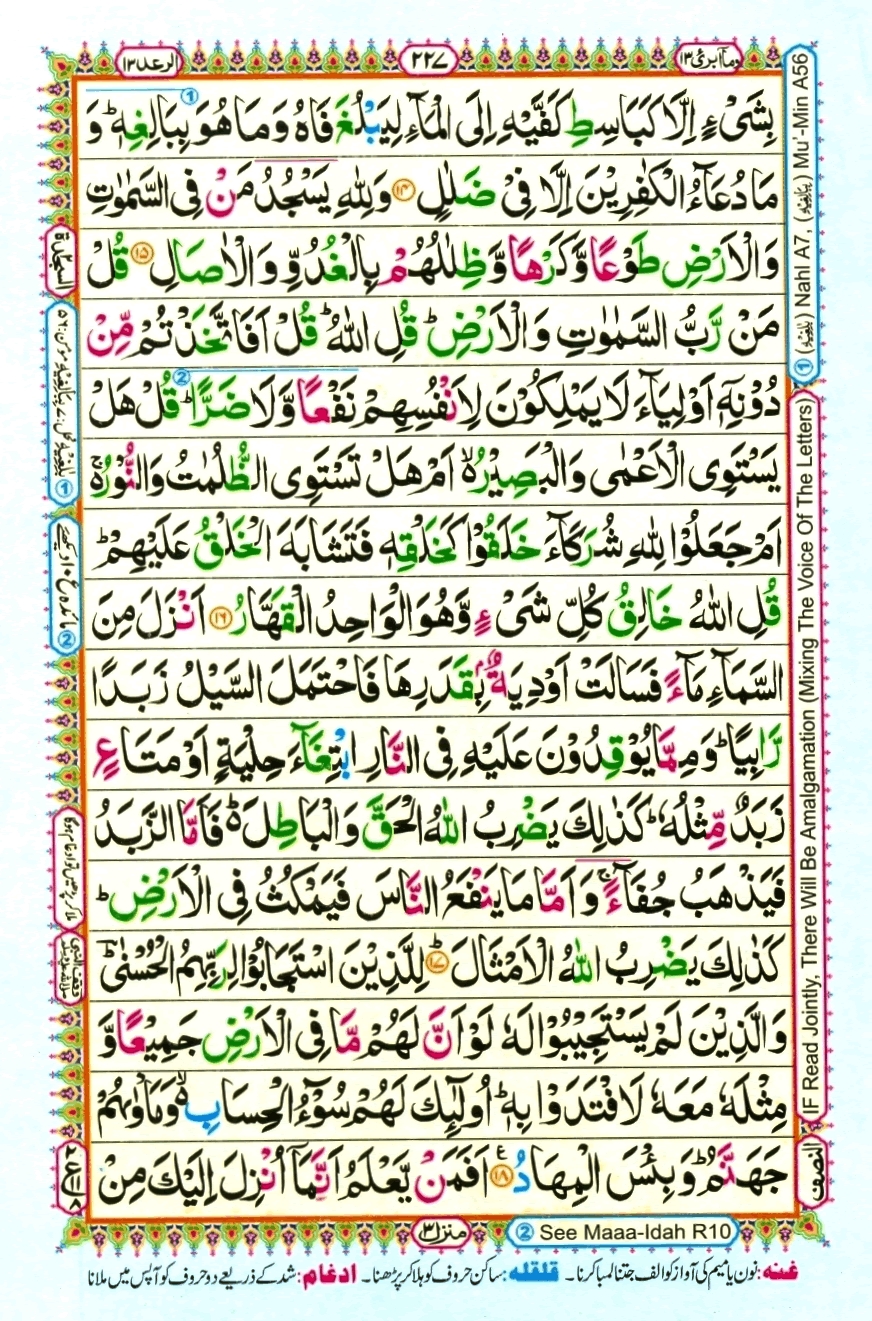 الرعد ١٣
٢٢٧
وما ابرئ ١٣
بِشَیْءٍ اِلَّا كَبَاسِطِ كَفَّیْهِ اِلَى الْمَآءِ لِیَبْلُغَ فَاهُ وَمَا هُوَ بِبَالِغِهٖ ؕ وَ
مَا دُعَآءُ الْكٰفِرِیْنَ اِلَّا فِیْ ضَلٰلٍ ۝۱۴ وَلِلّٰهِ یَسْجُدُ مَنْ فِی السَّمٰوٰتِ
وَالْاَرْضِ طَوْعًا وَّكَرْهًا وَّظِلٰلُهُمْ بِالْغُدُوِّ وَالْاٰصَالِ ۝۱۵ قُلْ
مَنْ رَّبُّ السَّمٰوٰتِ وَالْاَرْضِ ؕ قُلِ اللّٰهُ ؕ قُلْ اَفَاتَّخَذْتُمْ مِّنْ
دُوْنِهٖۤ اَوْلِیَآءَ لَا یَمْلِكُوْنَ لِاَنْفُسِهِمْ نَفْعًا وَّلَا ضَرًّا ؕ قُلْ هَلْ
یَسْتَوِی الْاَعْمٰى وَالْبَصِیْرُ ۙ۬ اَمْ هَلْ تَسْتَوِی الظُّلُمٰتُ وَالنُّوْرُ ۚ۬
اَمْ جَعَلُوْا لِلّٰهِ شُرَكَآءَ خَلَقُوْا كَخَلْقِهٖ فَتَشَابَهَ الْخَلْقُ عَلَیْهِمْ ؕ
قُلِ اللّٰهُ خَالِقُ كُلِّ شَیْءٍ وَّهُوَ الْوَاحِدُ الْقَهَّارُ ۝۱۶ اَنْزَلَ مِنَ
السَّمَآءِ مَآءً فَسَالَتْ اَوْدِیَةٌۢ بِقَدَرِهَا فَاحْتَمَلَ السَّیْلُ زَبَدًا
رَّابِیًا ؕ وَمِمَّا یُوْقِدُوْنَ عَلَیْهِ فِی النَّارِ ابْتِغَآءَ حِلْیَةٍ اَوْ مَتَاعٍ
زَبَدٌ مِّثْلُهٗ ؕ كَذٰلِكَ یَضْرِبُ اللّٰهُ الْحَقَّ وَالْبَاطِلَ ؕ۬ فَاَمَّا الزَّبَدُ
فَیَذْهَبُ جُفَآءً ۚ وَاَمَّا مَا یَنْفَعُ النَّاسَ فَیَمْكُثُ فِی الْاَرْضِ ؕ
كَذٰلِكَ یَضْرِبُ اللّٰهُ الْاَمْثَالَ ۝۱۷ؕ لِلَّذِیْنَ اسْتَجَابُوْا لِرَبِّهِمُ الْحُسْنٰى ؔؕ
وَالَّذِیْنَ لَمْ یَسْتَجِیْبُوْا لَهٗ لَوْ اَنَّ لَهُمْ مَّا فِی الْاَرْضِ جَمِیْعًا وَّ
مِثْلَهٗ مَعَهٗ لَافْتَدَوْا بِهٖ ؕ اُولٰٓىِٕكَ لَهُمْ سُوْٓءُ الْحِسَابِ ۙ۬ وَمَاْوٰىهُمْ
جَهَنَّمُ ؕ وَبِئْسَ الْمِهَادُ ۝۱۸ اَفَمَنْ یَّعْلَمُ اَنَّمَاۤ اُنْزِلَ اِلَیْكَ مِنْ
منزل ٣
② See Maaa-Idah R10
غنه: نون یا میم کی آواز کو الف جتنا لمبا کرنا۔ قلقله: ساکن حروف کو ہلا کر پڑھنا۔ ادغام: شد کے ذریعے دو حروف کو آپس میں ملانا
① (بٰلِغِیْهِ) Nahl A7, (بِبَالِغِیْهِ) Mu'-Min A56
IF Read Jointly, There Will Be Amalgamation (Mixing The Voice Of The Letters)
النصف
السجدة
① بٰلِغِیْهِ نحل: ٧، بِبَالِغِیْهِ مومن: ٥٦
② مائدہ رع ١٠ دیکھیے
ملا کر پڑھیں تو ادغام ہوگا